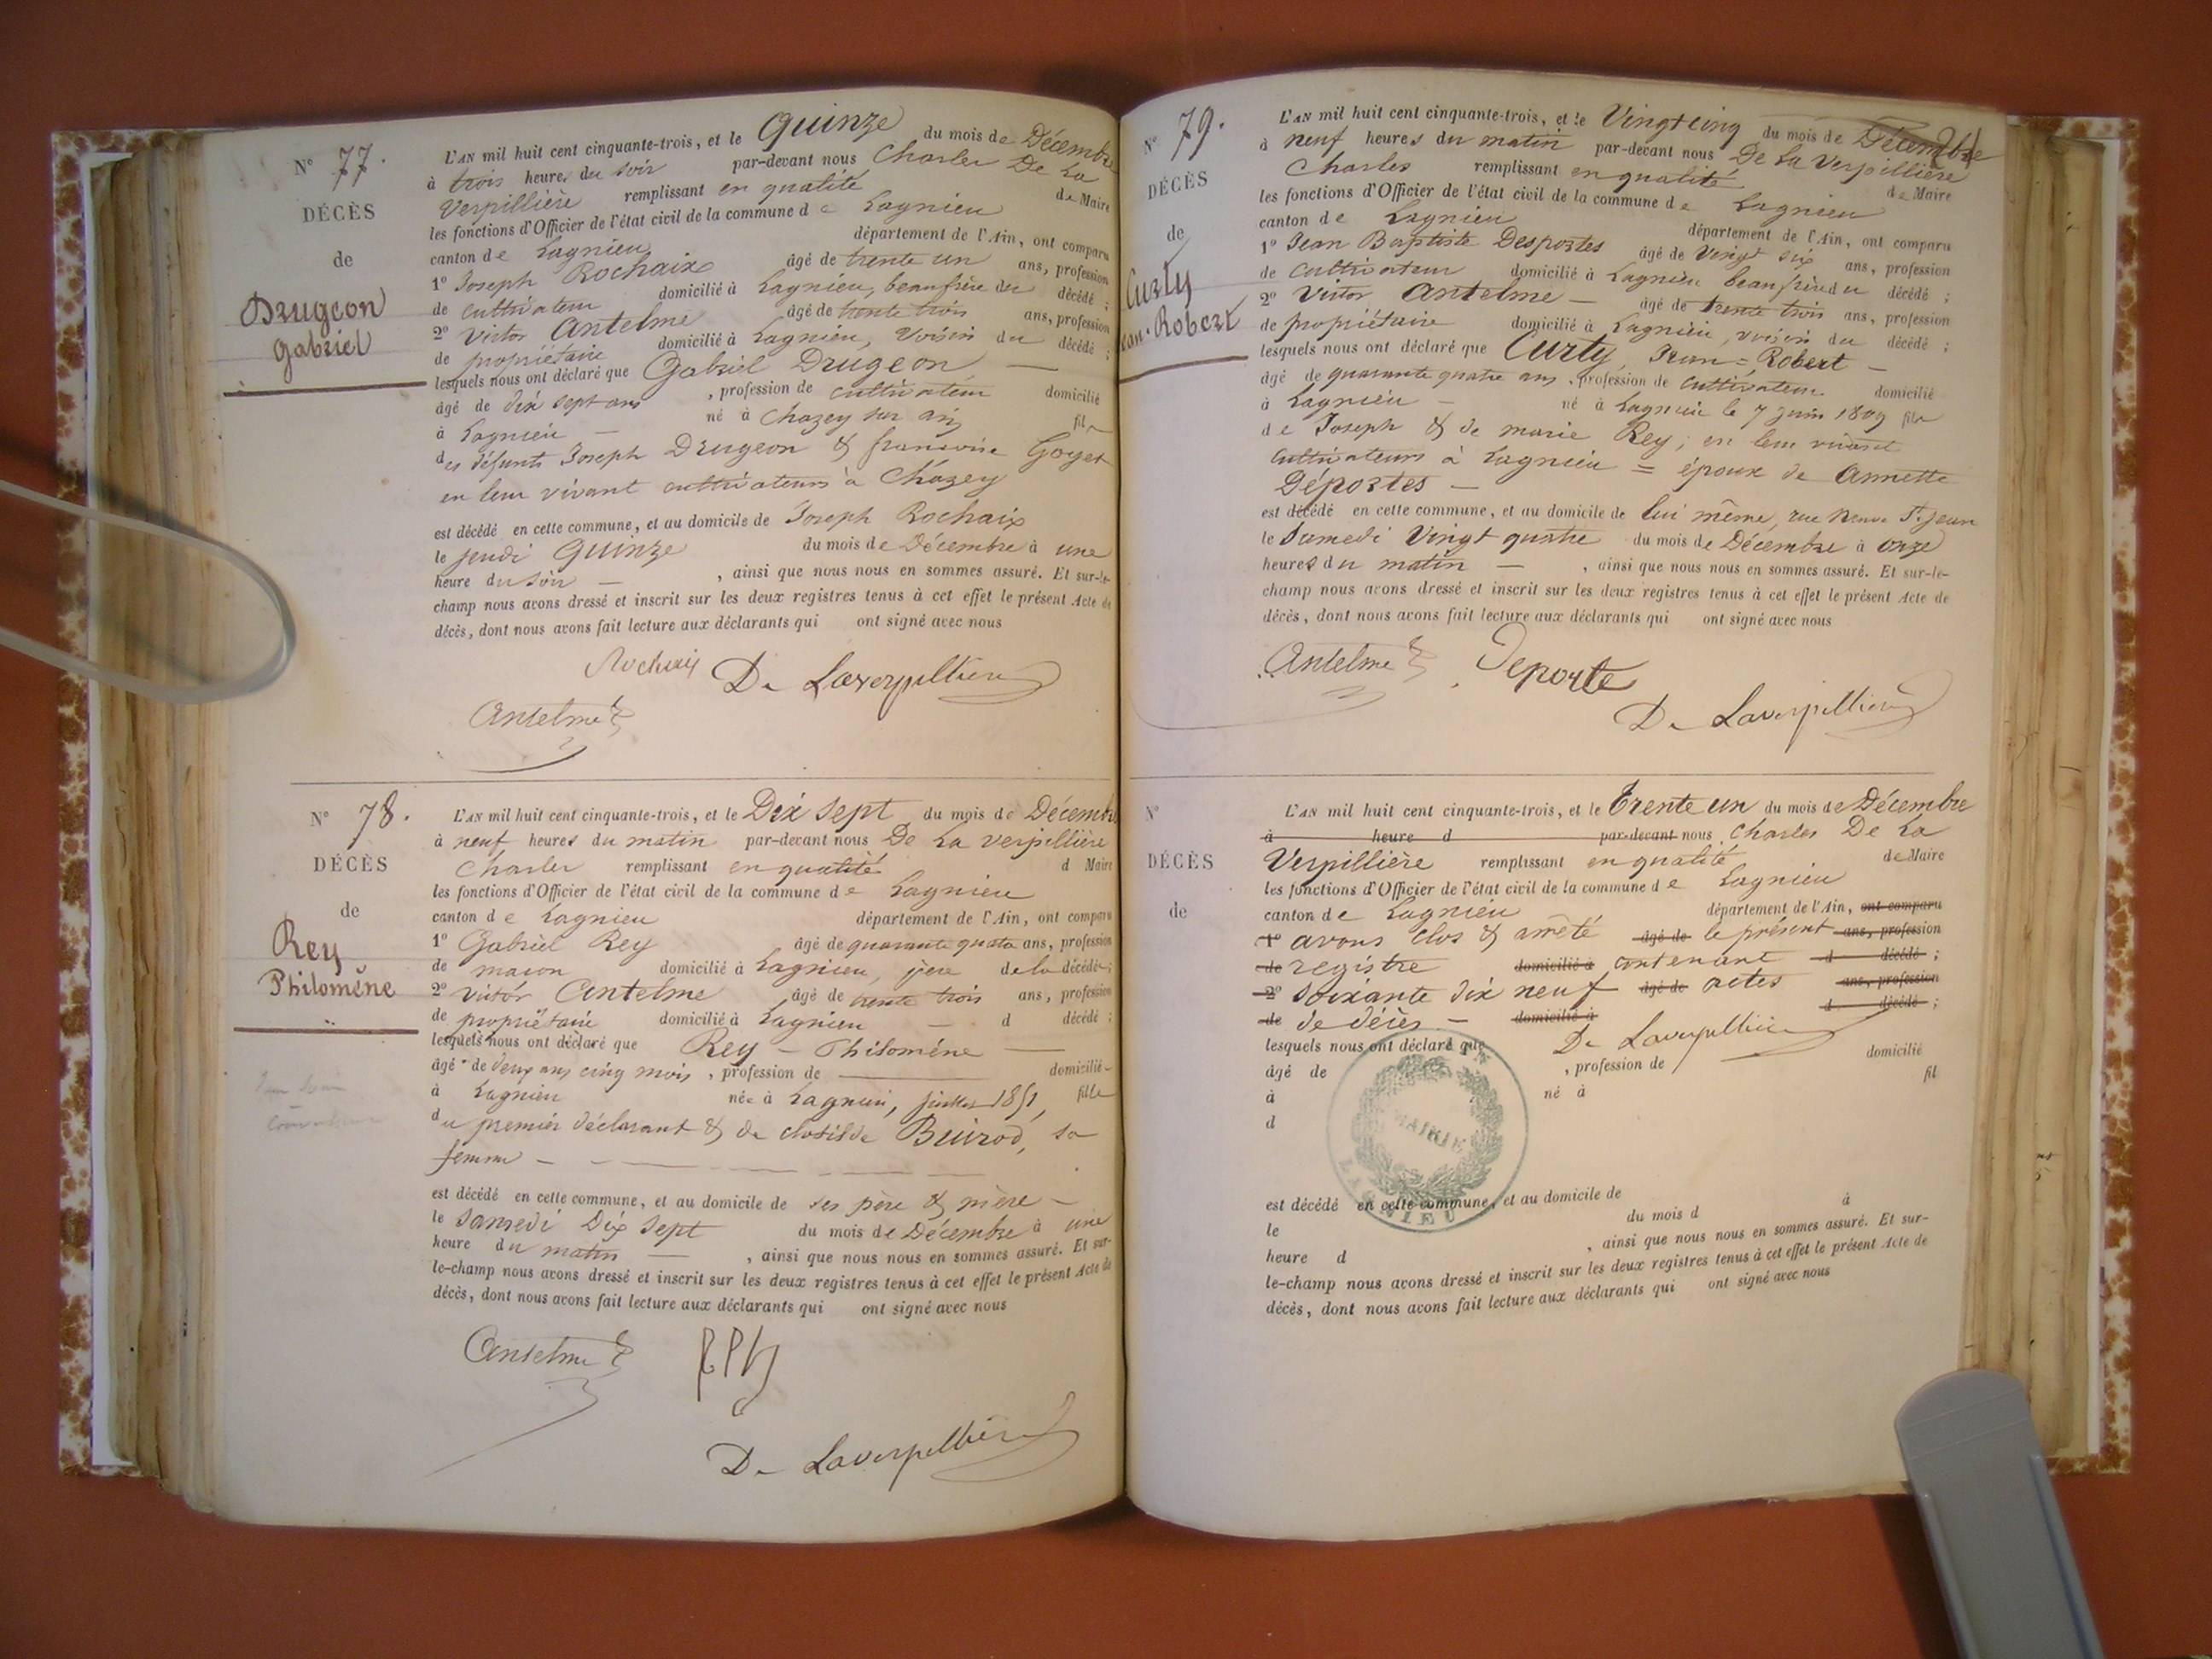 N° 77.
DÉCÈS
de
Drugeon
Gabriel
L'AN mil huit cent cinquante-trois, et le Quinze du mois de Décembre
à trois heures du soir par-devant nous Charles De La
Verpillière remplissant en qualité de Maire
les fonctions d'Officier de l'état civil de la commune de Lagnieu
canton de Lagnieu département de l'Ain, ont comparu
1° Joseph Rochaix âgé de trente un ans, profession
de cultivateur domicilié à Lagnieu, beaufrère du décédé ;
2° Victor Antelme âgé de trente trois ans, profession
de propriétaire domicilié à Lagnieu, voisin du décédé ;
lesquels nous ont déclaré que Gabriel Drugeon —
âgé de dix sept ans , profession de cultivateur domicilié
à Lagnieu — né à Chazey sur ain fils
des défunts Joseph Drugeon & francoise Goyet
en leur vivant cultivateurs à Chazey
est décédé en cette commune, et au domicile de Joseph Rochaix
le jeudi Quinze du mois de Décembre à une
heure du soir — , ainsi que nous nous en sommes assuré. Et sur-le-
champ nous avons dressé et inscrit sur les deux registres tenus à cet effet le présent Acte de
décès, dont nous avons fait lecture aux déclarants qui ont signé avec nous
Rochaix De Laverpilliere
Antelme
N° 78.
DÉCÈS
de
Rey
Philomène
L'AN mil huit cent cinquante-trois, et le Dix sept du mois de Décembre
à neuf heures du matin par-devant nous De La Verpillière
Charles remplissant en qualité d Maire
les fonctions d'Officier de l'état civil de la commune de Lagnieu
canton de Lagnieu département de l'Ain, ont comparu
1° Gabriel Rey âgé de quarante quatre ans, profession
de macon domicilié à Lagnieu, père de la décédée ;
2° Victor Antelme âgé de trente trois ans, profession
de propriétaire domicilié à Lagnieu — d décédé ;
lesquels nous ont déclaré que Rey - Philomène —
âgé de deux ans cinq mois , profession de — domicilié
à Lagnieu née à Lagnieu, juillet 1851, fille
du premier déclarant & de clotilde Buirod, sa
femme —
est décédé en cette commune, et au domicile de ses père & mère —
le samedi Dix sept du mois de Décembre à une
heure du matin — , ainsi que nous nous en sommes assuré. Et sur-
le-champ nous avons dressé et inscrit sur les deux registres tenus à cet effet le présent Acte de
décès, dont nous avons fait lecture aux déclarants qui ont signé avec nous
Antelme
De Laverpilliere
N° 79.
DÉCÈS
de
Curty
Jean-Robert
L'AN mil huit cent cinquante-trois, et le Vingt cinq du mois de Décembre
à neuf heures du matin par-devant nous De La Verpillière
Charles remplissant en qualité de Maire
les fonctions d'Officier de l'état civil de la commune de Lagnieu
canton de Lagnieu département de l'Ain, ont comparu
1° Jean Baptiste Desportes âgé de Vingt six ans, profession
de cultivateur domicilié à Lagnieu beaufrère du décédé ;
2° Victor Antelme — âgé de trente trois ans, profession
de propriétaire domicilié à Lagnieu, voisin du décédé ;
lesquels nous ont déclaré que Curty, Jean = Robert —
âgé de quarante quatre ans , profession de cultivateur domicilié
à Lagnieu — né à Lagnieu le 7 juin 1809 fils
de Joseph & de marie Rey, en leur vivant
cultivateurs à Lagnieu = époux de Annette
Déportes —
est décédé en cette commune, et au domicile de lui même, rue Neuve St. Jean
le Samedi Vingt quatre du mois de Décembre à onze
heures du matin — , ainsi que nous nous en sommes assuré. Et sur-le-
champ nous avons dressé et inscrit sur les deux registres tenus à cet effet le présent Acte de
décès, dont nous avons fait lecture aux déclarants qui ont signé avec nous
Antelme Deporte
De Laverpilliere
N°
DÉCÈS
de
L'AN mil huit cent cinquante-trois, et le Trente un du mois de Décembre
à heure d par-devant nous Charles De La
Verpillière remplissant en qualité de Maire
les fonctions d'Officier de l'état civil de la commune de Lagnieu
canton de Lagnieu département de l'Ain, ont comparu
1° avons clos & arrêté âgé de le présent ans, profession
de registre domicilié à contenant d décédé ;
2° soixante dix neuf âgé de actes ans, profession
de de décès — domicilié à d décédé ;
De Laverpilliere
lesquels nous ont déclaré que
âgé de , profession de domicilié
à né à fil
d
MAIRIE
LAGNIEU
est décédé en cette commune, et au domicile de
le du mois d à
heure d , ainsi que nous nous en sommes assuré. Et sur-
le-champ nous avons dressé et inscrit sur les deux registres tenus à cet effet le présent Acte de
décès, dont nous avons fait lecture aux déclarants qui ont signé avec nous